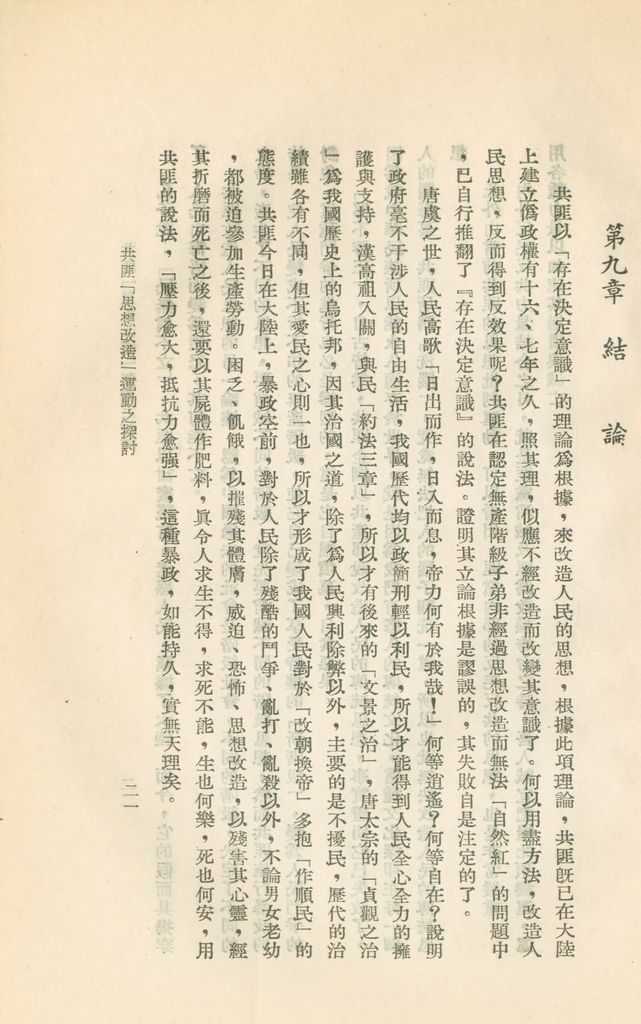 第九章　結　論
共匪以「存在決定意識」的理論爲根據，來改造人民的思想，根據此項理論，共匪既已在大陸
上建立僞政權有十六、七年之久，照其理，似應不經改造而改變其意識了。何以用盡方法，改造人
民思想，反而得到反效果呢？共匪在認定無產階級子弟非經過思想改造而無法「自然紅」的問題中
，已自行推翻了『存在決定意識』的說法。證明其立論根據是謬誤的，其失敗自是注定的了。
唐虞之世，人民高歌「日出而作，日入而息，帝力何有於我哉！」何等逍遙？何等自在？說明
了政府毫不干涉人民的自由生活，我國歷代均以政簡刑輕以利民，所以才能得到人民全心全力的擁
護與支持，漢高祖入關，與民「約法三章」，所以才有後來的「文景之治」，唐太宗的「貞觀之治
」爲我國歷史上的烏托邦，因其治國之道，除了爲人民興利除弊以外，主要的是不擾民，歷代的治
績雖各有不同，但其愛民之心則一也，所以才形成了我國人民對於「改朝換帝」多抱「作順民」的
態度。共匪今日在大陸上，暴政空前，對於人民除了殘酷的鬥爭、亂打、亂殺以外，不論男女老幼
，都被迫參加生產勞動。困乏、飢餓，以摧殘其體膚，威迫、恐怖、思想改造，以殘害其心靈，經
其折磨而死亡之後，還要以其屍體作肥料，眞令人求生不得，求死不能，生也何樂，死也何安，用
共匪的說法，「壓力愈大，抵抗力愈强」，這種暴政，如能持久，實無天理矣。
共匪「思想改造」運動之探討
二一